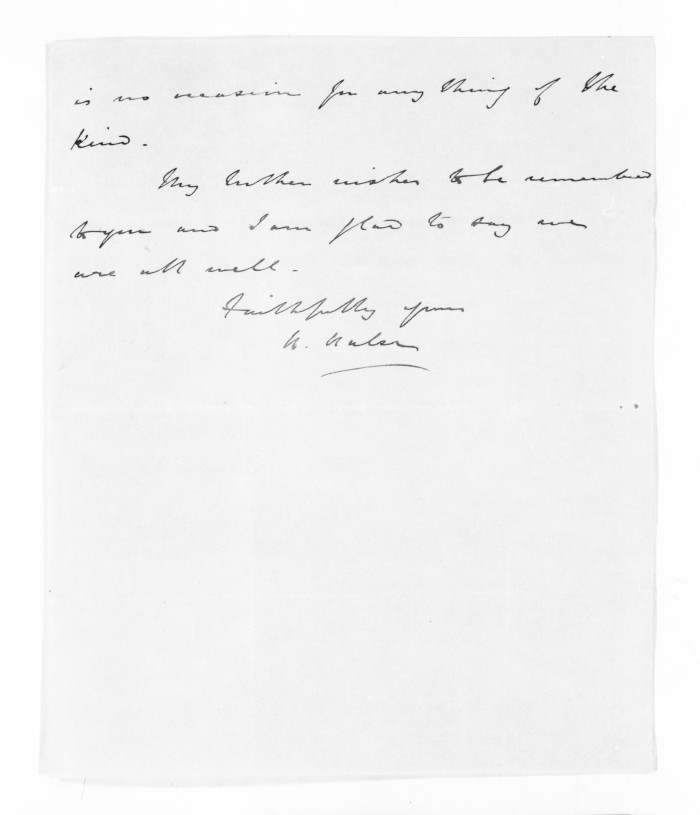 is no occasion for any thing of the
kind.
My wishes to be remembered
to you and I am glad to say we
are all well.
Faithfully yours